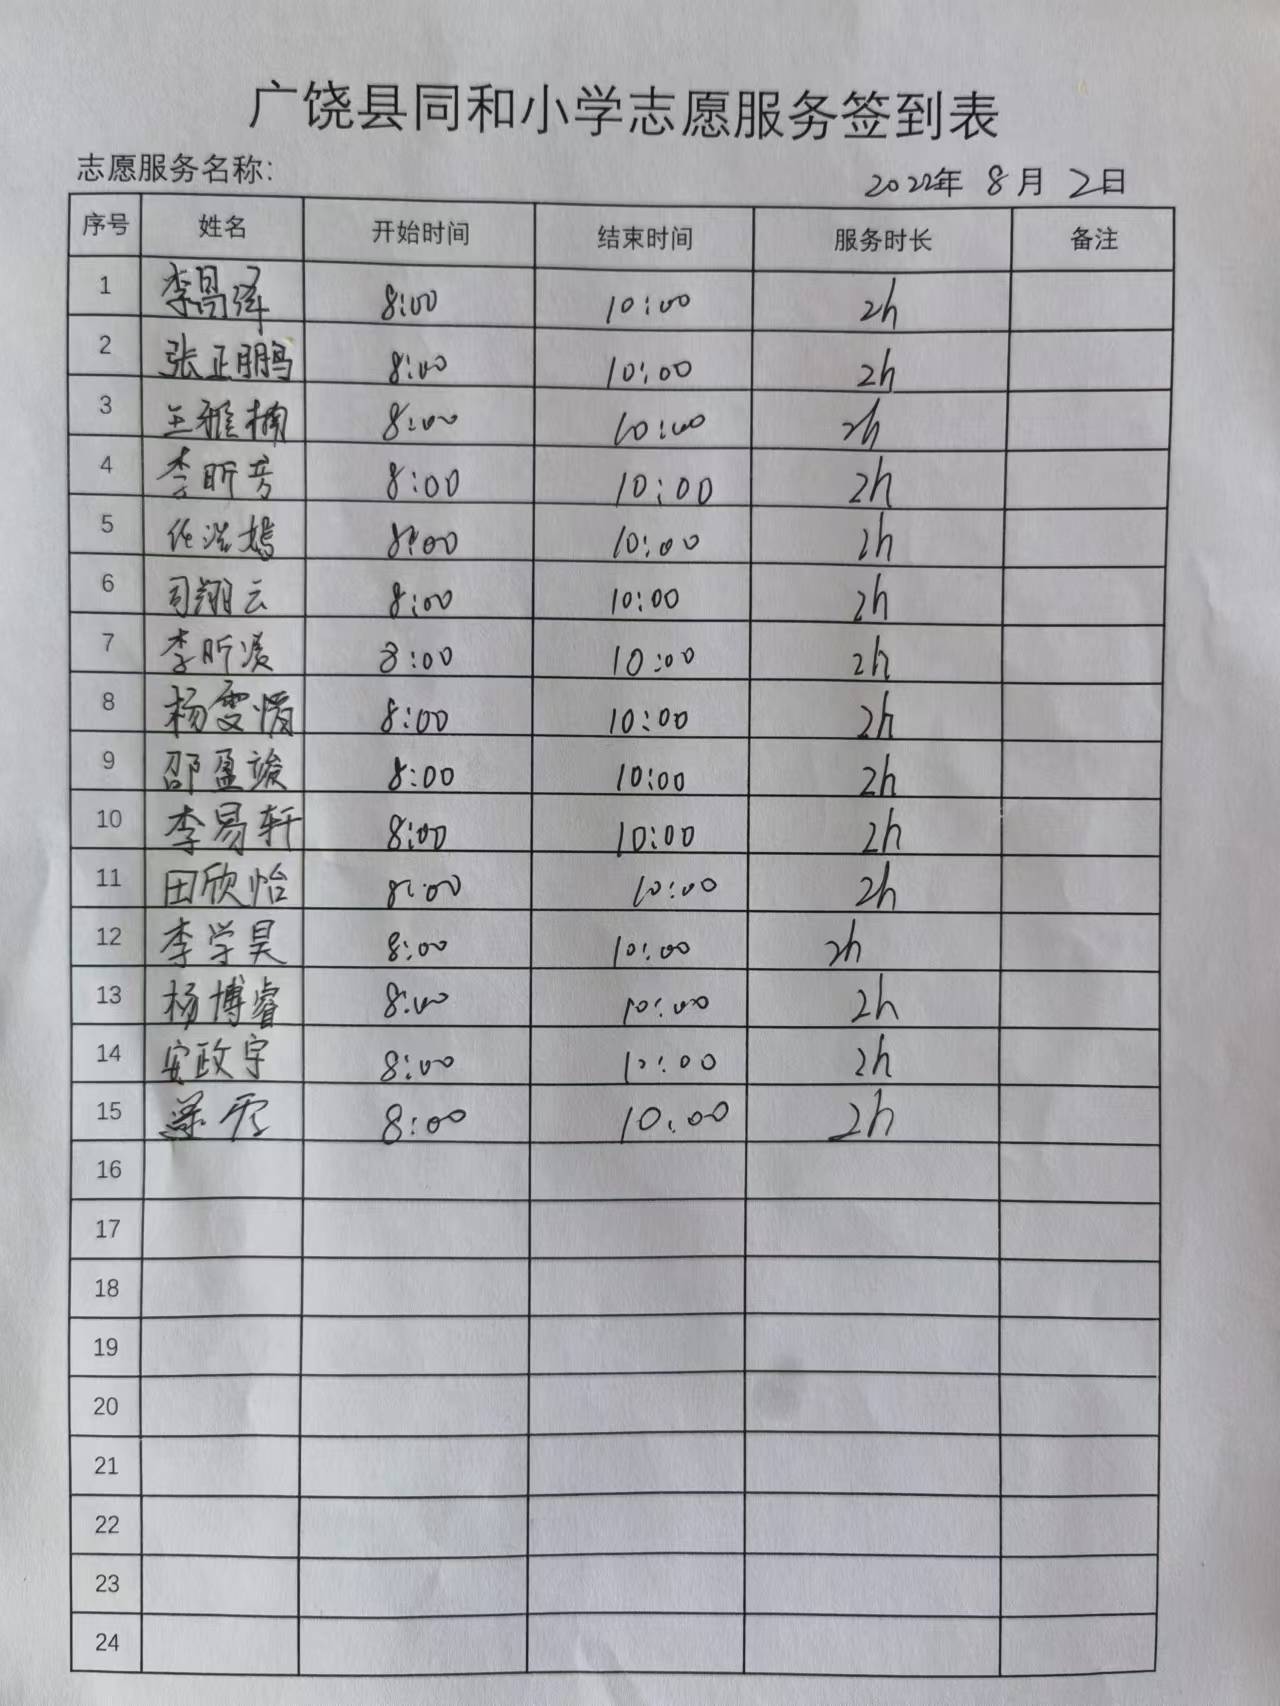 广饶县同和小学志愿服务签到表
志愿服务名称:
2022年 8月 2日
序号 姓名 开始时间 结束时间 服务时长 备注
1 李昌泽 8:00 10:00 2h
2 张正鹏 8:00 10:00 2h
3 王雅楠 8:00 10:00 2h
4 李昕芳 8:00 10:00 2h
5 任浩嫣 8:00 10:00 2h
6 司翔云 8:00 10:00 2h
7 李昕凌 8:00 10:00 2h
8 杨雯惰 8:00 10:00 2h
9 邵盈竣 8:00 10:00 2h
10 李易轩 8:00 10:00 2h
11 田欣怡 8:00 10:00 2h
12 李学昊 8:00 10:00 2h
13 杨博睿 8:00 10:00 2h
14 安政宇 8:00 10:00 2h
15 8:00 10:00 2h
16
17
18
19
20
21
22
23
24